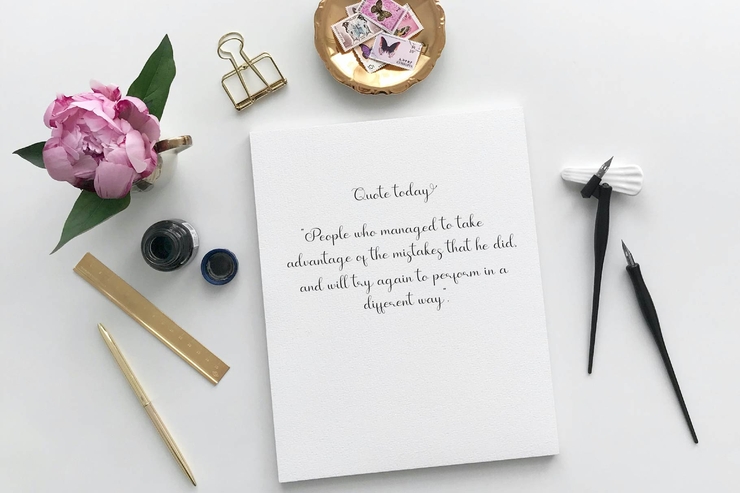 Quote today
"People who managed to take
advantage of the mistakes that he did,
and will try again to perform in a
different way".